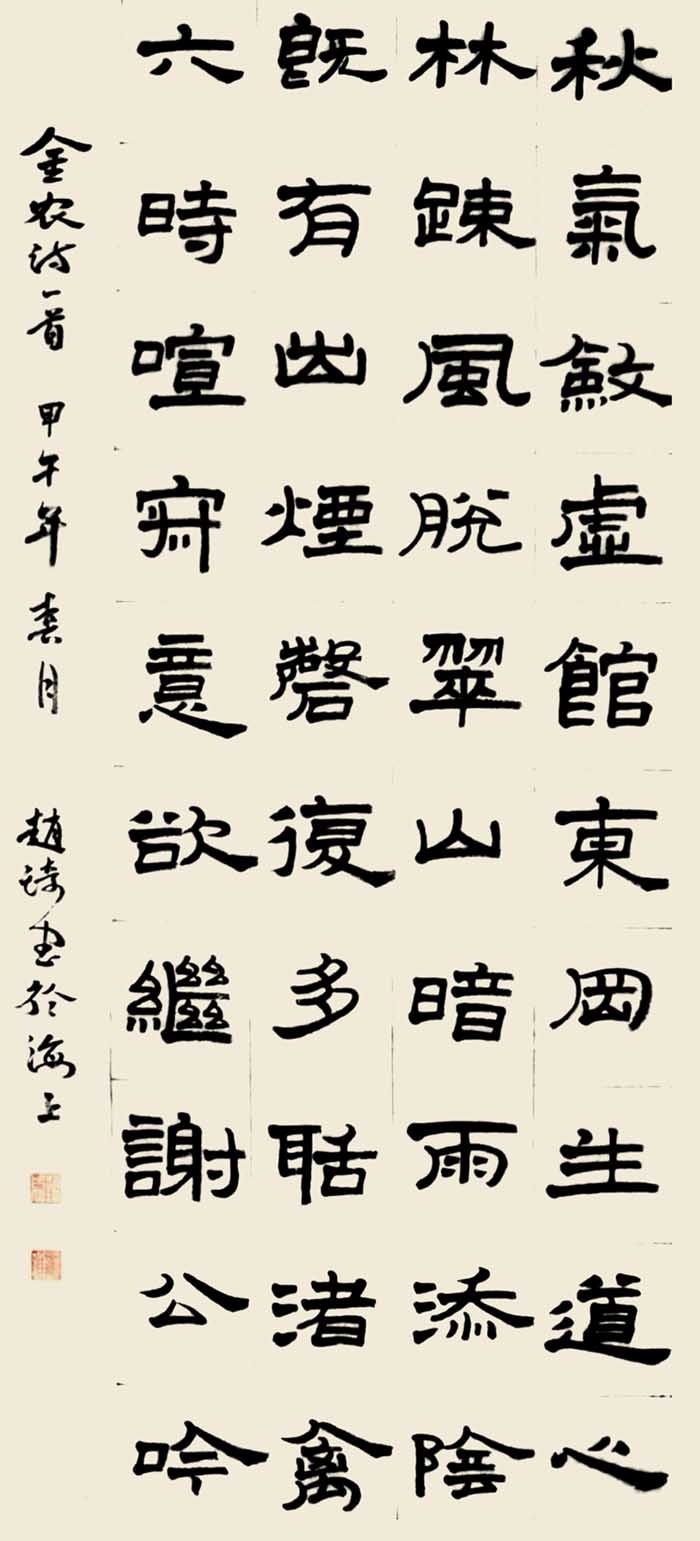 秋氣斂虛館東岡生道心
林踈風脫翠山暗雨添陰
既有出煙磬復多聒渚禽
六時喧寂意欲繼謝公吟
金农诗一首 甲午年春月 趙书於海上